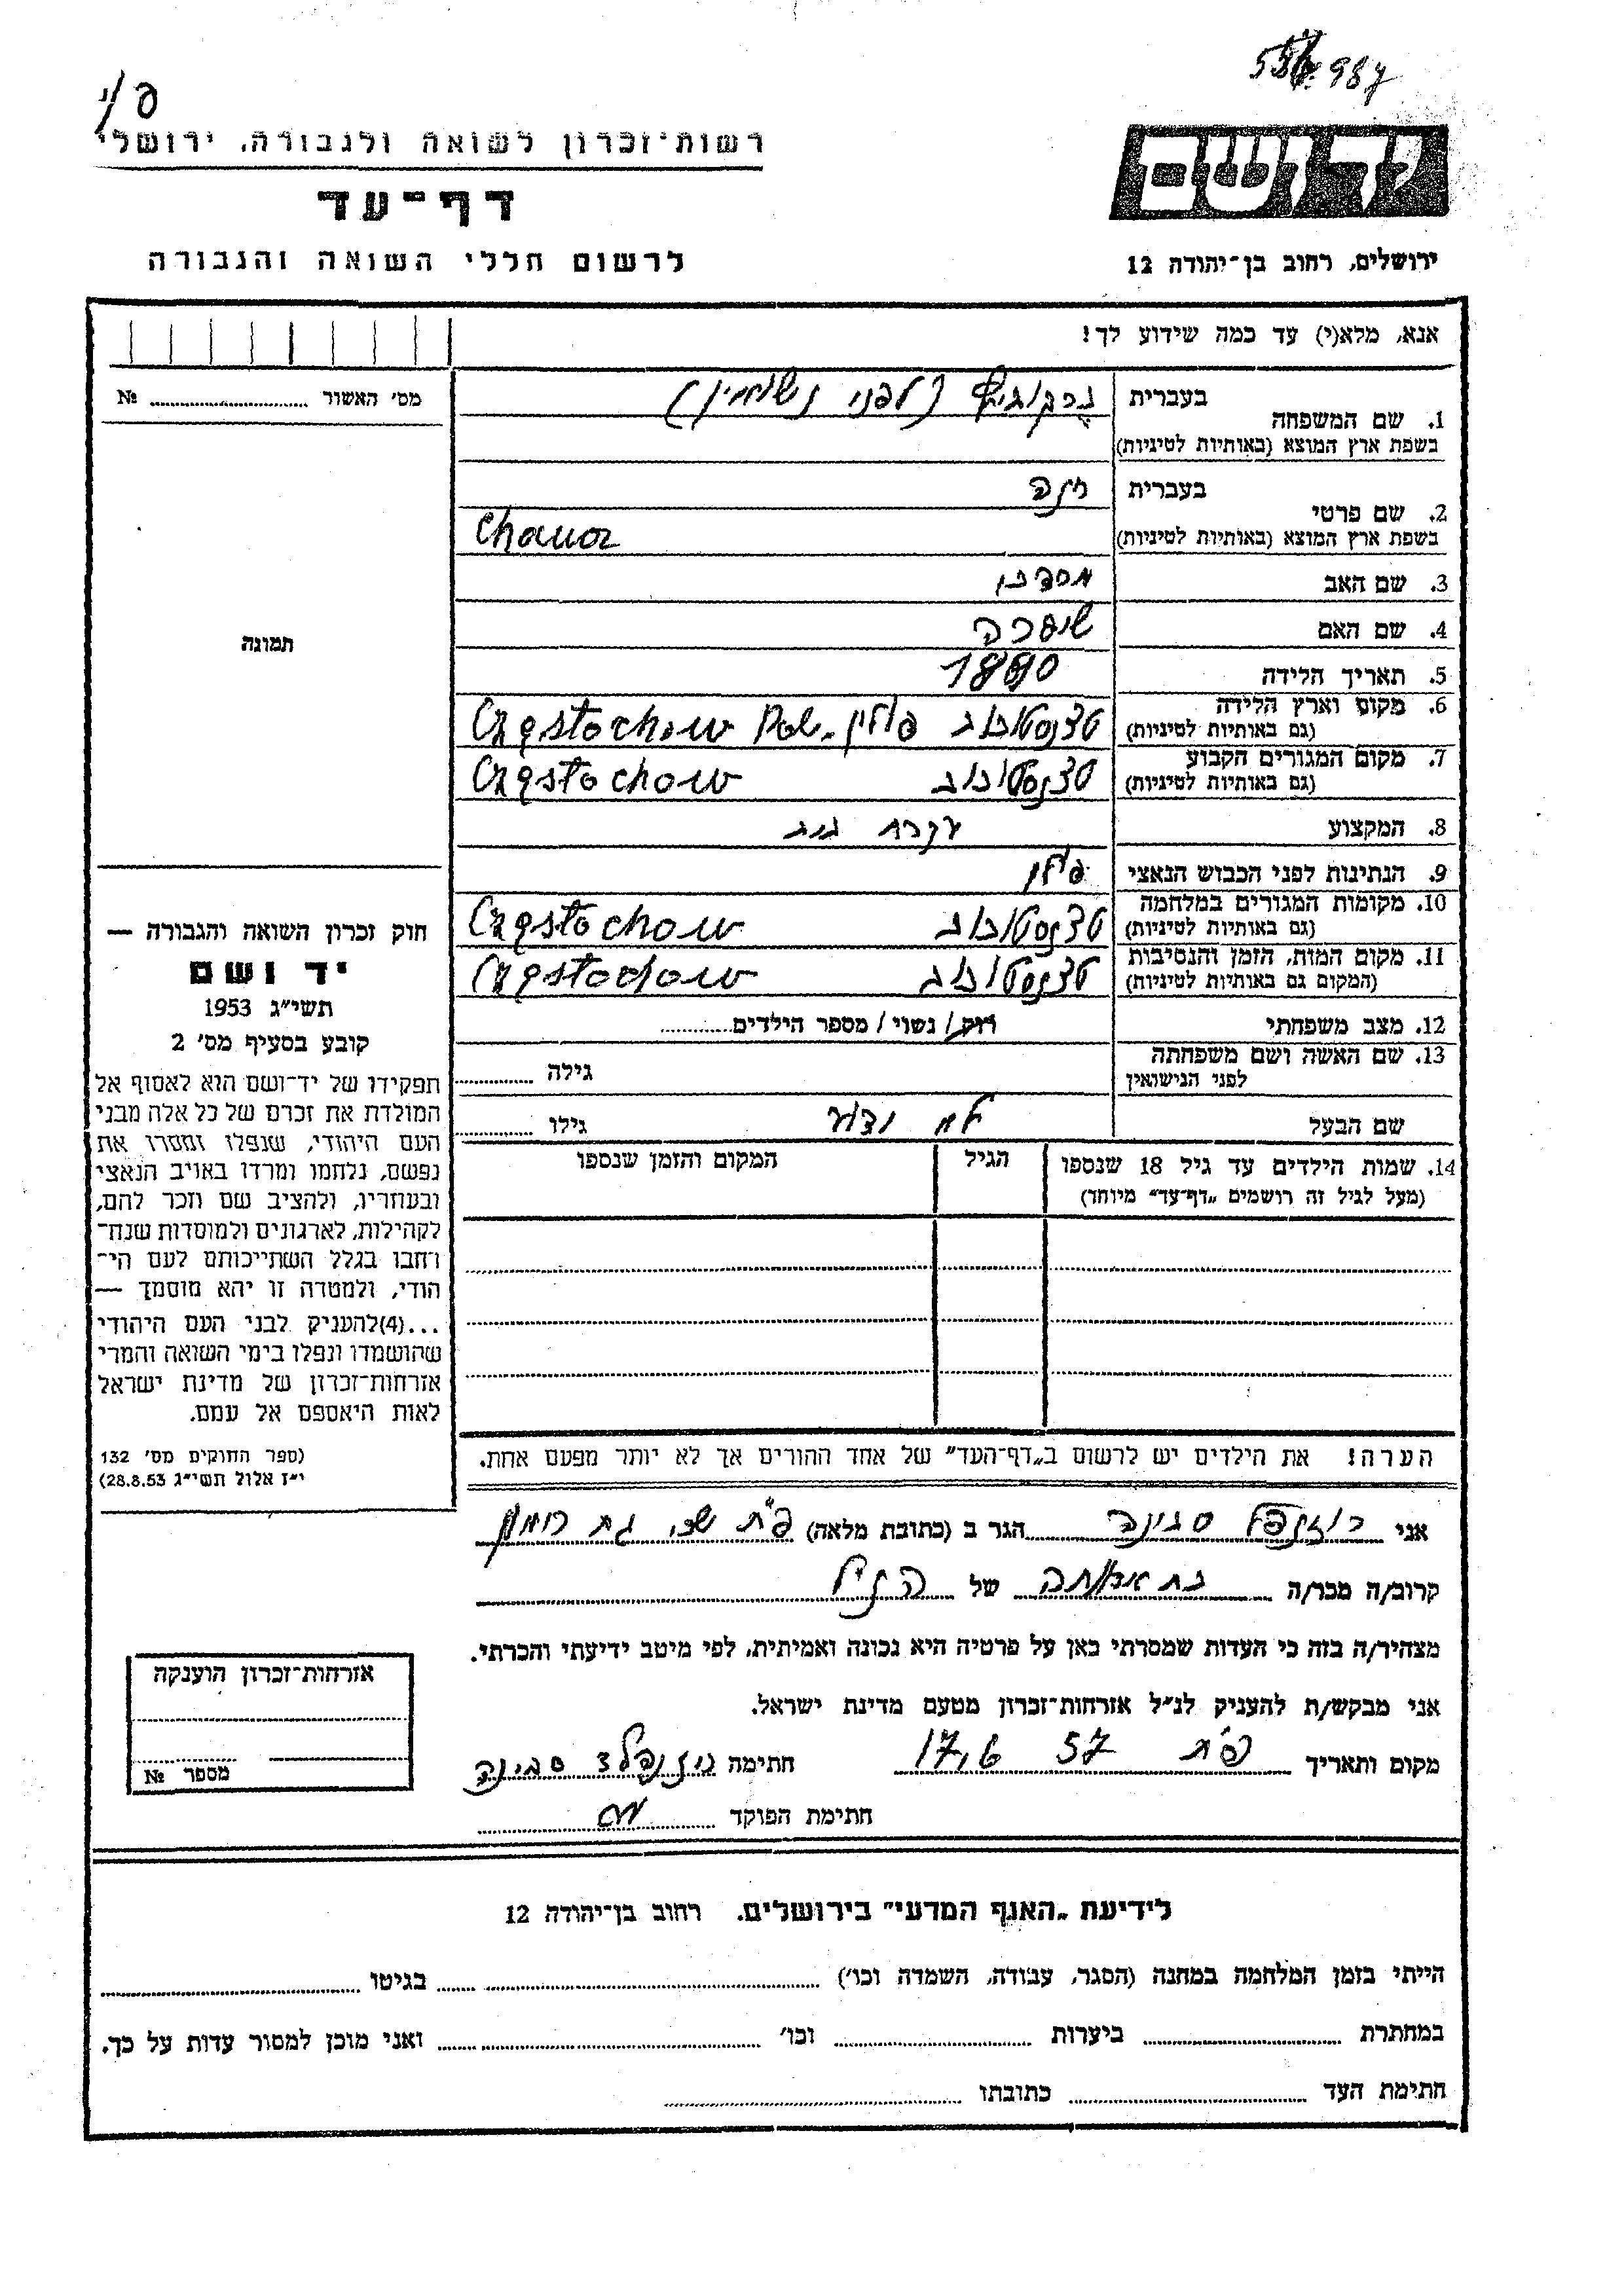 פ/י
987
רשות־זכרון לשואה ולגבורה, ירושלי
דף־עד
לרשום חללי השואה והגבורה
ירושלים, רחוב בן־יהודה 12
אנא, מלא(י) עד כמה שידוע לך!
מס׳ האשור № 
1. שם המשפחה
בעברית (לפני נשואין)
בשפת ארץ המוצא (באותיות לטיניות)
2. שם פרטי
בעברית חנה
בשפת ארץ המוצא (באותיות לטיניות)
3. שם האב
4. שם האם שיפרה
5. תאריך הלידה 1890
6. מקום וארץ הלידה
(גם באותיות לטיניות) טשנסטוכוב פולין Częstochow
7. מקום המגורים הקבוע
(גם באותיות לטיניות) טשנסטוכוב Częstochow
8. המקצוע עקרת בית
9. הנתינות לפני הכבוש הנאצי פולין
10. מקומות המגורים במלחמה
(גם באותיות לטיניות) טשנסטוכוב Częstochow
11. מקום המות, הזמן והנסיבות
(המקום גם באותיות לטיניות) טשנסטוכוב Częstochow
12. מצב משפחתי רוק/ נשוי/ מספר הילדים
13. שם האשה ושם משפחתה
לפני הנישואין גילה
שם הבעל גילו
14. שמות הילדים עד גיל 18 שנספו
(מעל לגיל זה רושמים „דף־עד״ מיוחד)
הגיל
המקום והזמן שנספו
תמונה
חוק זכרון השואה והגבורה —
יד ושם
תשי״ג 1953
קובע בסעיף מס׳ 2
תפקידו של יד־ושם הוא לאסוף אל
המולדת את זכרם של כל אלה מבני
העם היהודי, שנפלו ומסרו את
נפשם, נלחמו ומרדו באויב הנאצי
ובעוזריו, ולהציב שם וזכר להם,
לקהילות, לארגונים ולמוסדות שנח־
רחבו בגלל השתייכותם לעם הי־
הודי, ולמטרה זו יהא מוסמך —
...(4)להעניק לבני העם היהודי
שהושמדו ונפלו בימי השואה והמרי
אזרחות־זכרון של מדינת ישראל
לאות היאספם אל עמם.
(ספר החוקים מס׳ 132
י״ז אלול תשי״ג 28.8.53)
הערה! את הילדים יש לרשום ב„דף־העד״ של אחד ההורים אך לא יותר מפעם אחת.
אני סבינה הגר ב (כתובת מלאה) פ״ת גת רימון
קרוב/ה מכר/ה של הנ״ל
מצהיר/ה בזה כי העדות שמסרתי כאן על פרטיה היא נכונה ואמיתית, לפי מיטב ידיעתי והכרתי.
אני מבקש/ת להעניק לנ״ל אזרחות־זכרון מטעם מדינת ישראל.
מקום ותאריך פ״ת 17.6 57 חתימה סבינה
חתימת הפוקד
אזרחות־זכרון הוענקה
מספר №
לידיעת „האגף המדעי״ בירושלים. רחוב בן־יהודה 12
הייתי בזמן המלחמה במחנה (הסגר, עבודה, השמדה וכו׳) בגיטו
במחתרת ביערות וכו׳ ואני מוכן למסור עדות על כך.
חתימת העד כתובתו